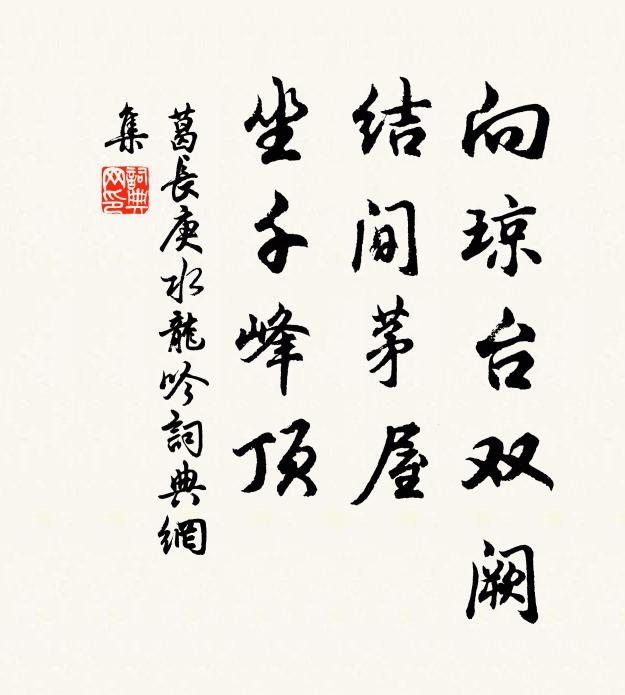 向琼台双阙
结间茅屋
坐千峰顶
葛長庚水龍吟詞典網
集
詞典
网印